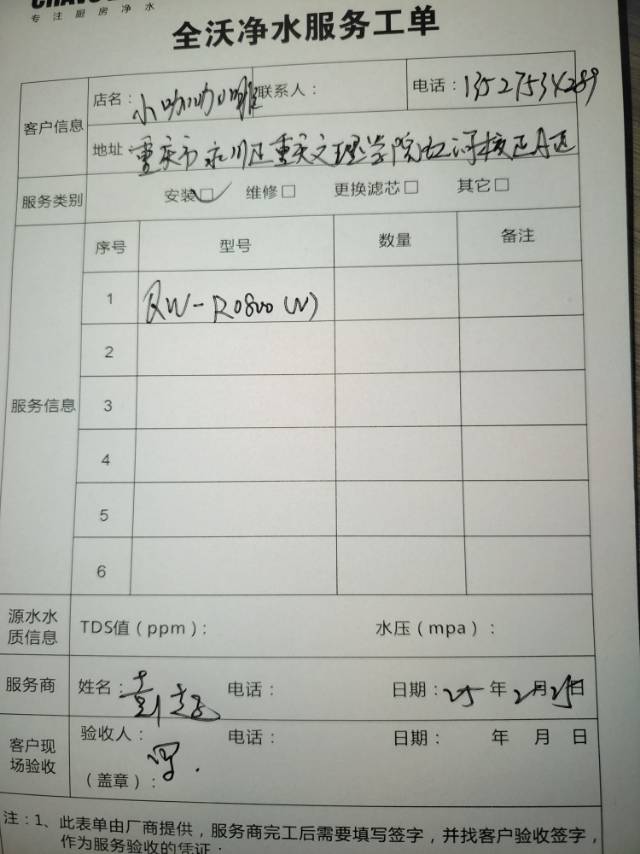 专注厨房净水
全沃净水服务工单
客户信息
店名：小咖咖啡 联系人： 电话：13527534289
地址 重庆市永川区重庆文理学院红河校区A区
服务类别 安装☑ 维修□ 更换滤芯□ 其它□
服务信息
序号 型号 数量 备注
1 QW-RO800(W)
2
3
4
5
6
源水水质信息 TDS值（ppm）： 水压（mpa）：
服务商 姓名： 电话： 日期：25年2月25日
客户现场验收 验收人： 电话： 日期： 年 月 日
（盖章）：
注：1、此表单由厂商提供，服务商完工后需要填写签字，并找客户验收签字，
作为服务验收的凭证；